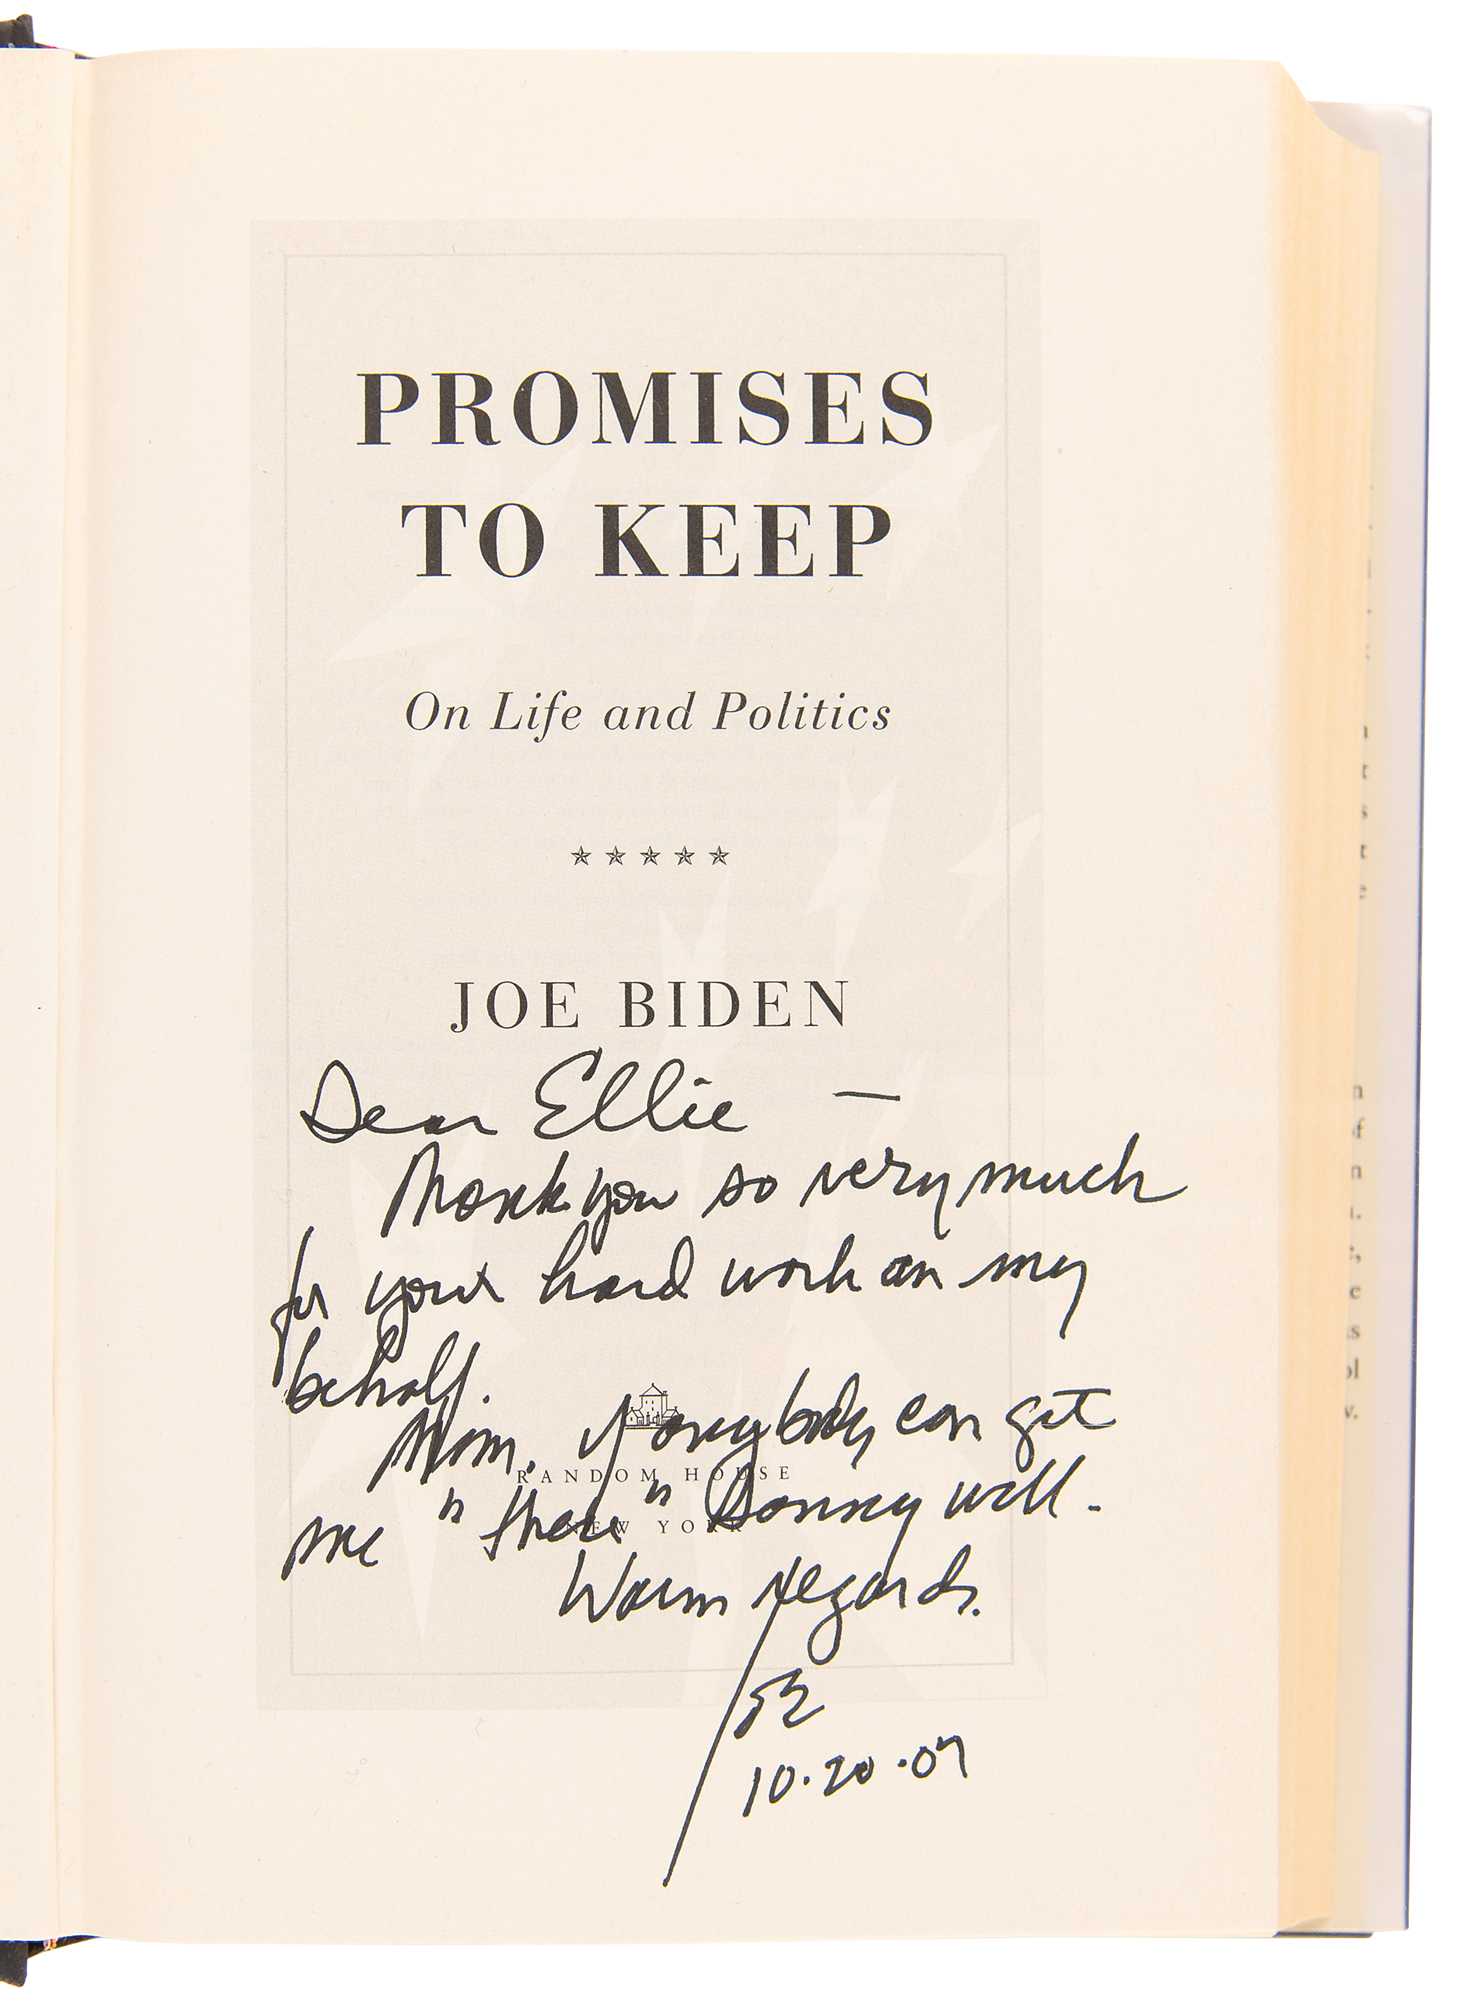 PROMISES
TO KEEP
On Life and Politics
★★★★★
JOE BIDEN
Dear Ellie —
Thank you so very much
for your hard work on my
behalf.
Mom, if anybody can get
RANDOM HOUSE
me "there" Sonny will.
NEW YORK
Warm regards.
10.20.07